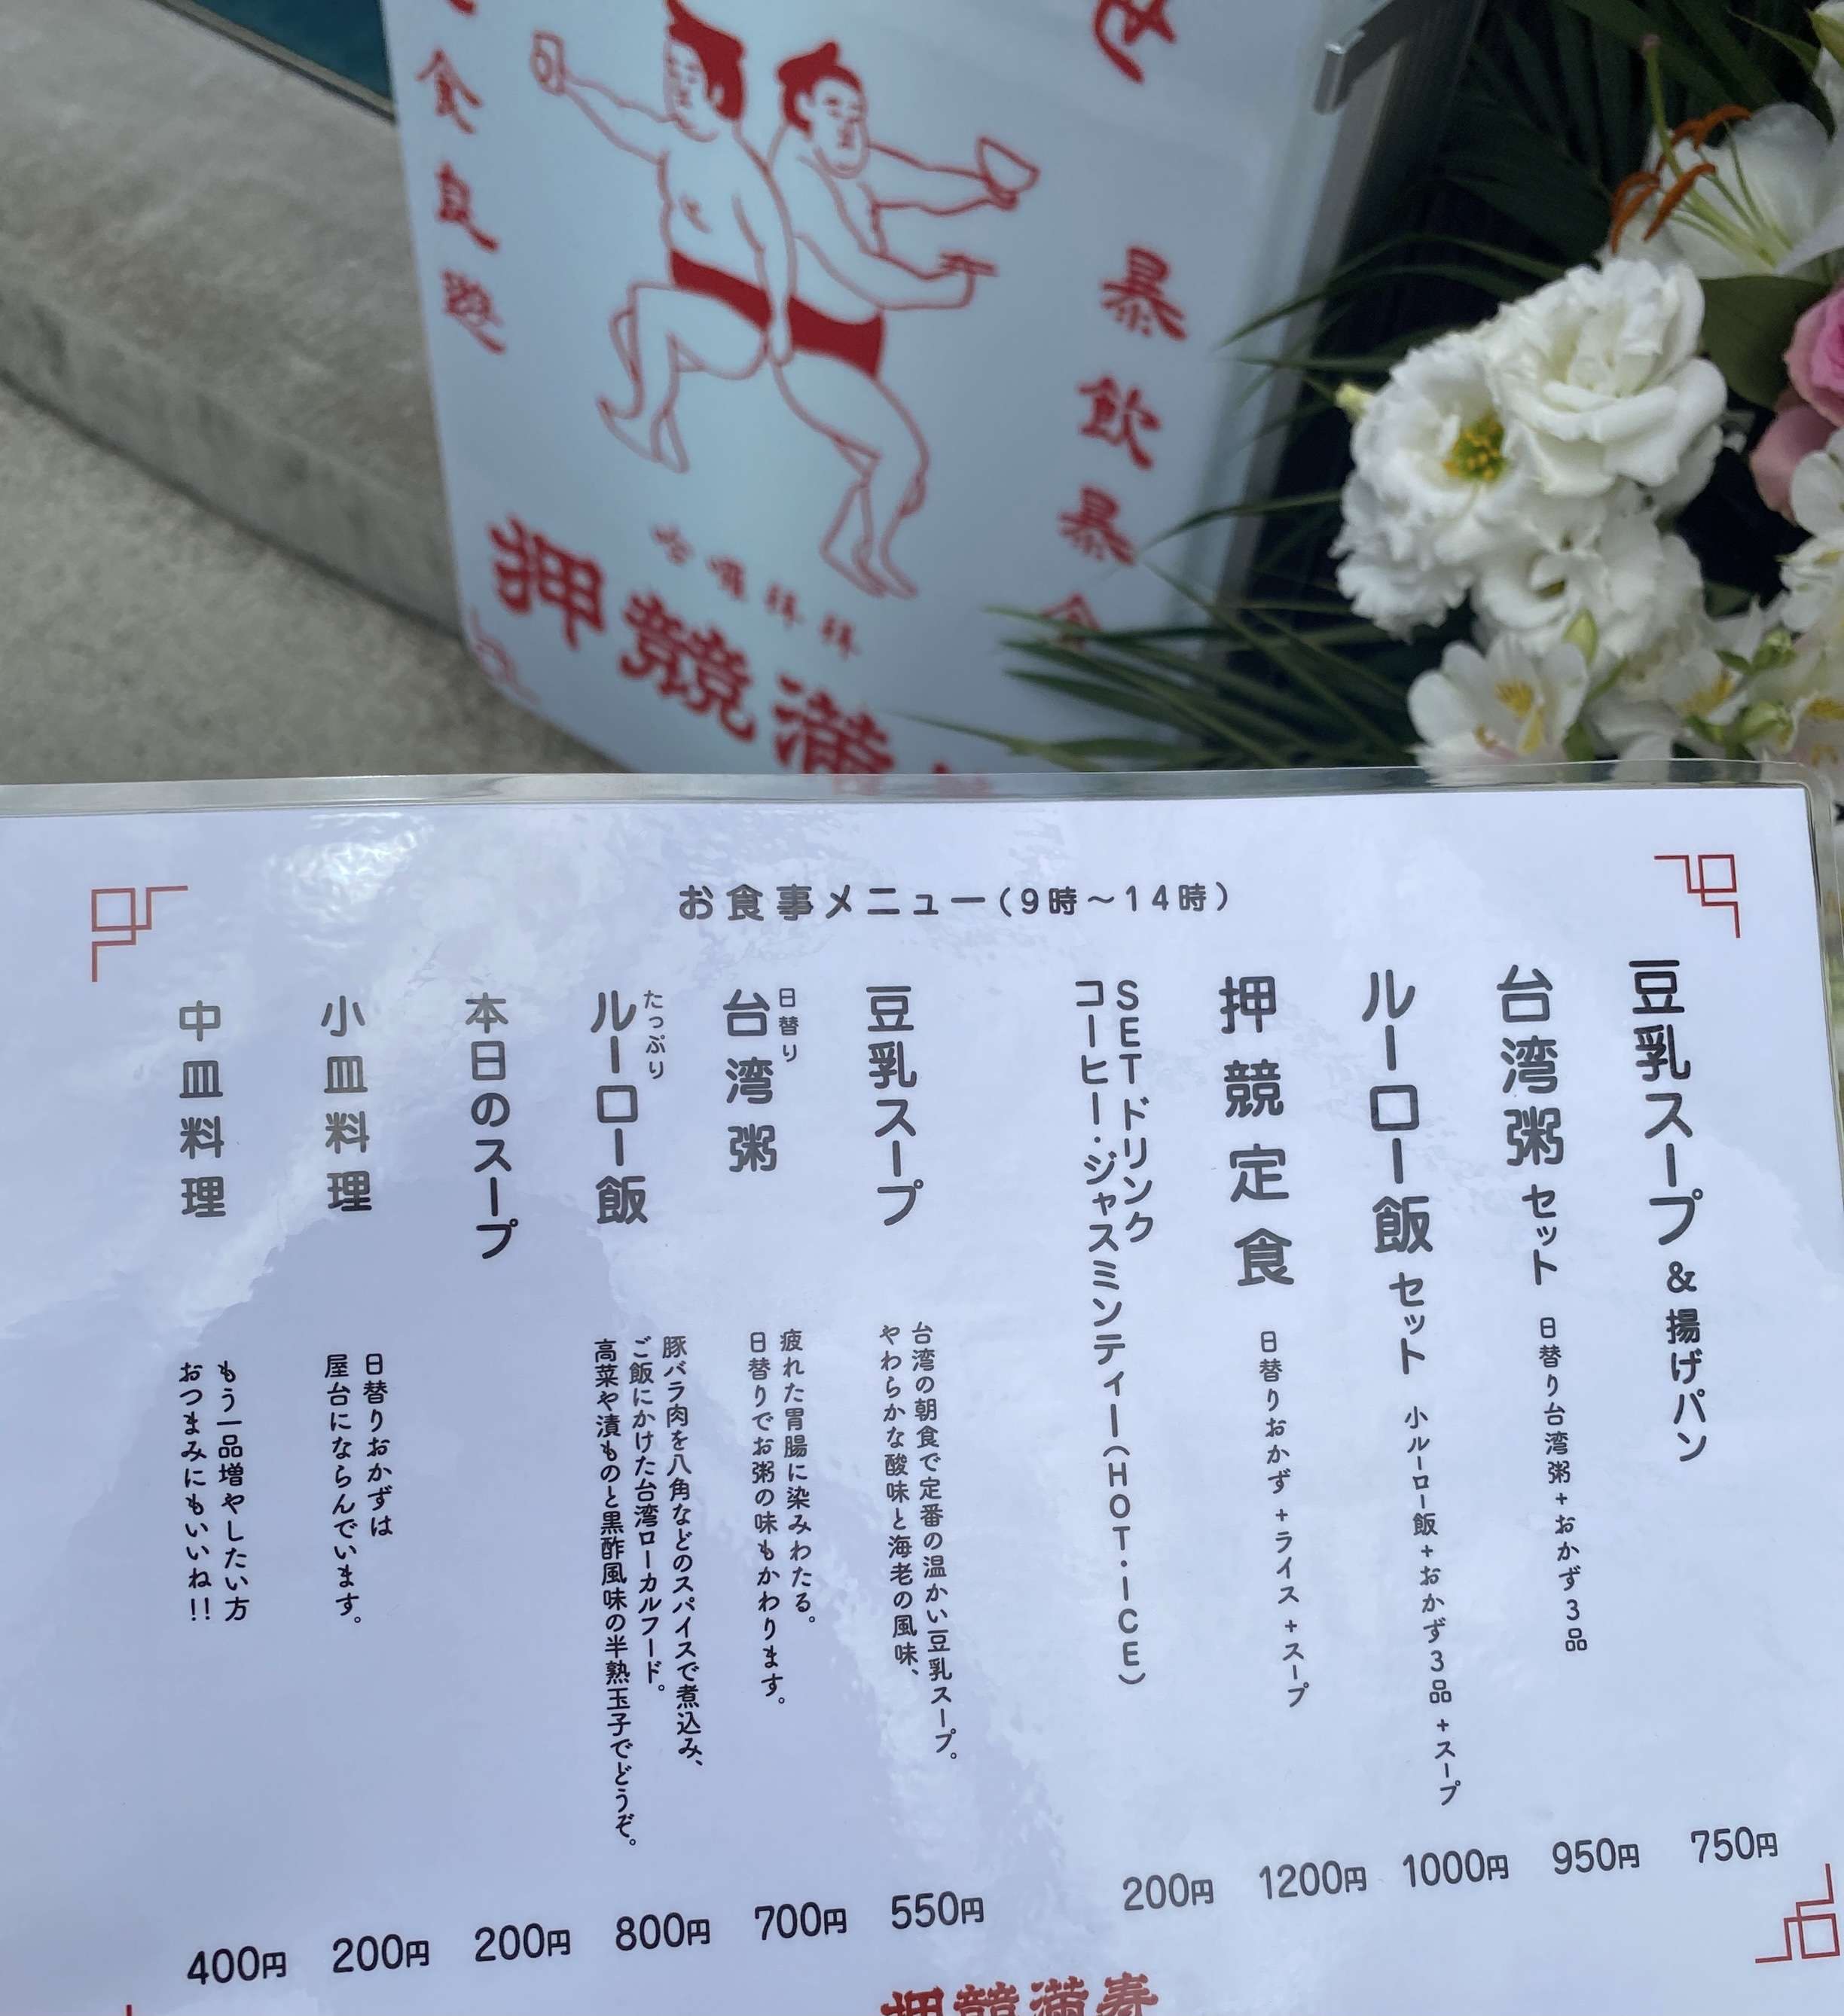 食
食
良
遊
暴
飲
暴
食
押競満
お食事メニュー(9時~14時)
豆乳スープ&揚げパン
750円
台湾粥セット 日替り台湾粥+おかず3品
950円
ルーロー飯セット 小ルーロー飯+おかず3品+スープ
1000円
押競定食 日替りおかず+ライス+スープ
1200円
SETドリンク
コーヒー・ジャスミンティー(HOT・ICE)
200円
豆乳スープ
台湾の朝食で定番の温かい豆乳スープ。
やわらかな酸味と海老の風味、
550円
日替り
台湾粥
疲れた胃腸に染みわたる。
日替りでお粥の味もかわります。
700円
たっぷり
ルーロー飯
豚バラ肉を八角などのスパイスで煮込み、
ご飯にかけた台湾ローカルフード。
高菜や漬ものと黒酢風味の半熟玉子でどうぞ。
800円
本日のスープ
200円
小皿料理
日替りおかずは
屋台にならんでいます。
200円
中皿料理
もう一品増やしたい方
おつまみにもいいね!!
400円
押競満寿